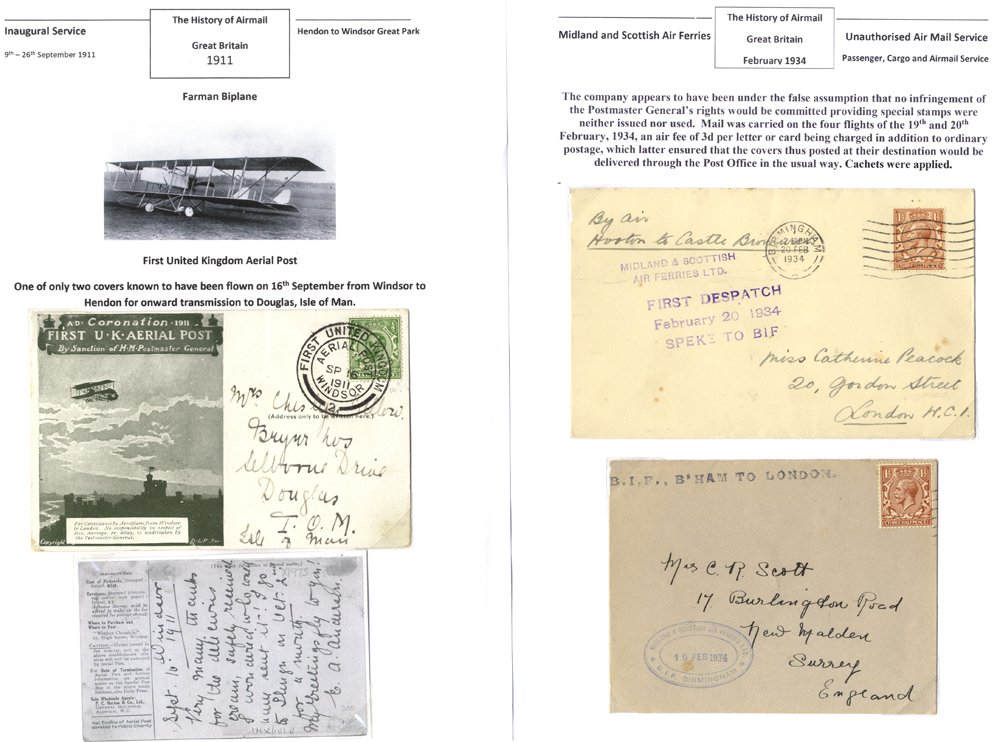 Inaugural Service
9th – 26th September 1911
The History of Airmail
Great Britain
1911
Hendon to Windsor Great Park
Farman Biplane
First United Kingdom Aerial Post
One of only two covers known to have been flown on 16th September from Windsor to
Hendon for onward transmission to Douglas, Isle of Man.
A·D· Coronation · 1911
FIRST U·K·AERIAL POST
By Sanction of H·M·Postmaster General
For Conveyance by Aeroplane from Windsor
to London. No responsibility in respect of
loss, damage, or delay, is undertaken by
the Postmaster-General.
Copyright
FIRST UNITED KINGDOM
AERIAL POST
SP 16
1911
WINDSOR
2
Mrs
(Address only to be written here.)
Selborne Drive
Douglas
I. O. M.
Isle of Man
Cost of Postcards, Stamped
Where to Purchase and
Where to Post:
"Windsor Chronicle,"
For Date of Termination of
Aerial Post
Sole Wholesale Agents:
P. C. Burton & Co., Ltd.,
Net Profits of Aerial Post
devoted to Public Charity
Sept 16 Windsor
1911
Very many thanks
for the delicious
cream, safely received
I wonder who
sent it! I go
to Sligo on Oct. 2nd
for a month
My greetings fly to you!
Midland and Scottish Air Ferries
The History of Airmail
Great Britain
February 1934
Unauthorised Air Mail Service
Passenger, Cargo and Airmail Service
The company appears to have been under the false assumption that no infringement of
the Postmaster General's rights would be committed providing special stamps were
neither issued nor used. Mail was carried on the four flights of the 19th and 20th
February, 1934, an air fee of 3d per letter or card being charged in addition to ordinary
postage, which latter ensured that the covers thus posted at their destination would be
delivered through the Post Office in the usual way. Cachets were applied.
By air
Hooton to Castle Bromwich
BIRMINGHAM
20 FEB
1934
MIDLAND & SCOTTISH
AIR FERRIES LTD.
FIRST DESPATCH
February 20 1934
SPEKE TO BIF
Miss Catherine Peacock
20, Gordon Street
London W.C.1
B.I.F., B'HAM TO LONDON.
Mrs C. R. Scott
17 Burlington Road
New Malden
Surrey
England
MIDLAND & SCOTTISH AIR FERRIES LTD
19 FEB 1934
B.I.F. BIRMINGHAM